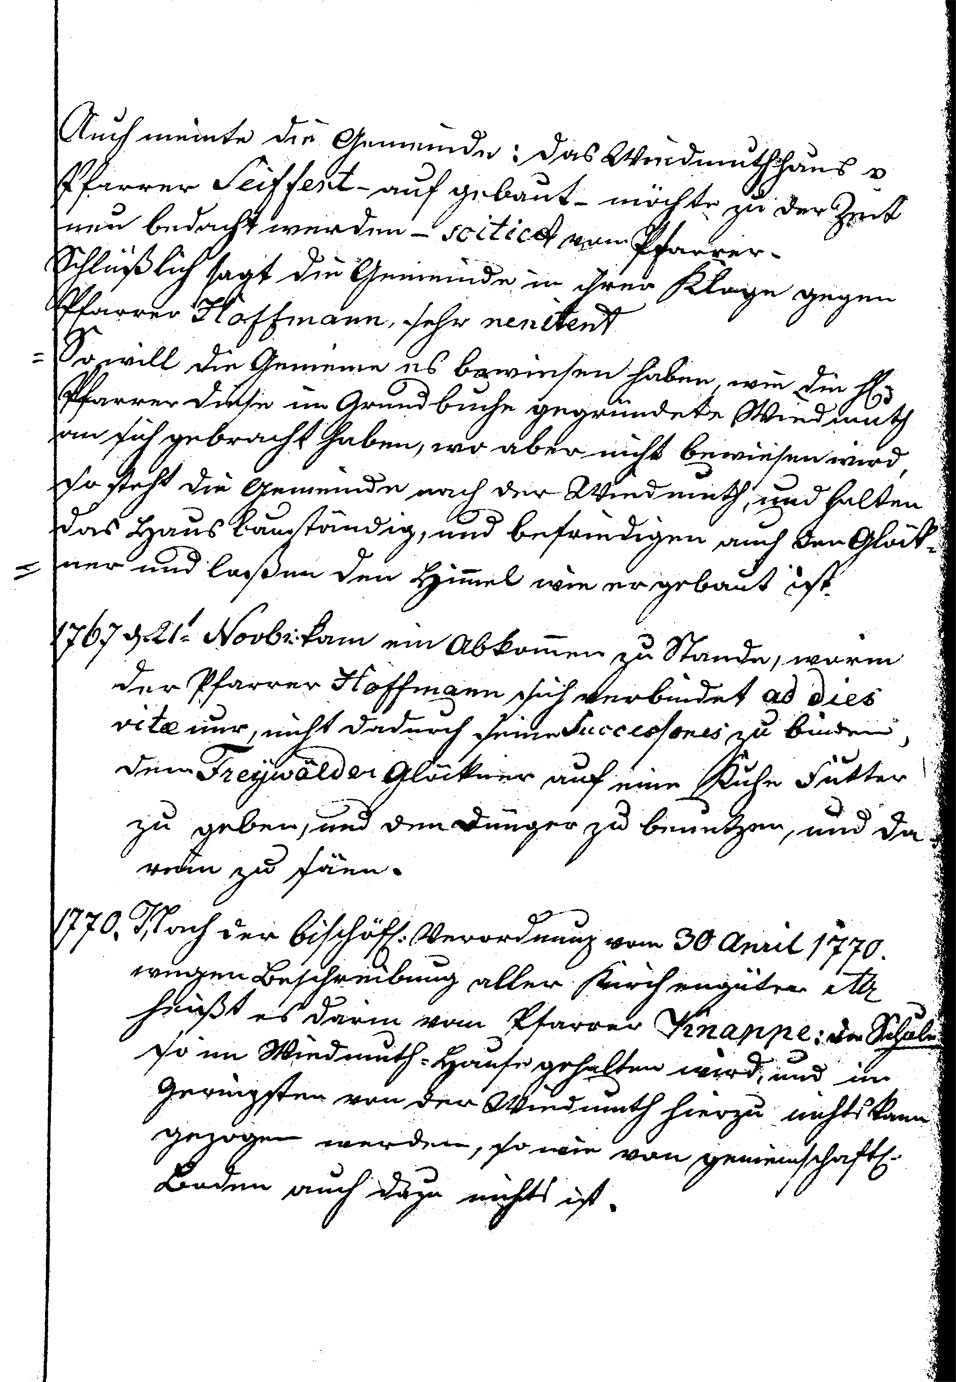 Auch meinte die Gemeinde: das Wiedmuthshaus v
Pfarrer Seiffert - auf gebaut - möchte zu der Zeit
neu bedacht werden - scilicet vom Pfarrer.
Schlüßlich sagt die Gemeinde in ihrer Klage gegen
Pfarrer Hoffmann, sehr renitent
= So will die Gemeine es bewiesen haben, wie die
Pfarrer diese im Grundbuche gegründete Wiedmuth
an sich gebracht haben, wo aber nicht bewiesen wird,
so steht die Gemeinde nach der Wiedmuth, und halten
das Haus bauständig, und befriedigen auch den Glöck-
= ner und laßen den Him̄el wie er gebaut ist.
1767 d. 21t Novbr: kam ein Abkom̄en zu Stande, worin
der Pfarrer Hoffmann sich verbindet ad dies
vitæ nur, nicht dadurch seine Successores zu binden,
dem Freÿwälder Glöckner auf eine Kuhe Futter
zu geben, und den Dünger zu benutzen, und da-
rein zu säen.
1770. Nach der bischöfl: Verordnung vom 30 April 1770.
wegen Beschreibung aller Kirchengüter etc
heißt es darin vom Pfarrer Knappe: die Schule
so im Wiedmuth-Hause gehalten wird, und im
Geringsten von der Wiedmuth hierzu nichts kann
gezogen werden, so wie von gemeinschaftl.
Boden auch dazu nichts ist.